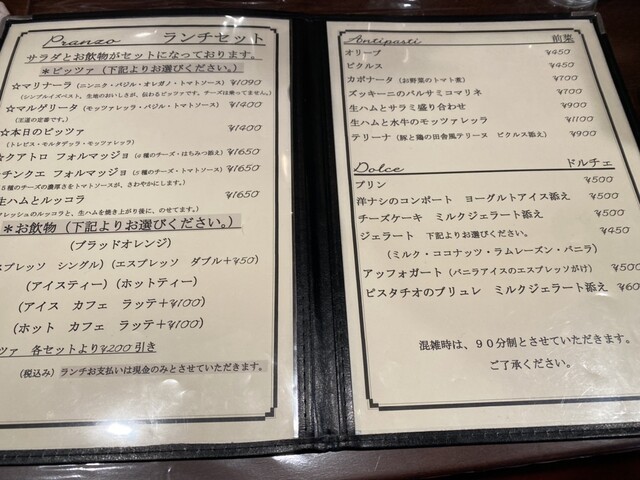 Pranzo ランチセット
サラダとお飲物がセットになっております。
＊ピッツァ（下記よりお選びください。）
☆マリナーラ（ニンニク・バジル・オレガノ・トマトソース） ¥1090
（シンプルイズベスト。生地のおいしさが、伝わるピッツァです。チーズは乗ってません。）
☆マルゲリータ（モッツァレッラ・バジル・トマトソース） ¥1400
（王道の定番です。）
☆本日のピッツァ ¥1400
（トレビス・モルタデッラ・モッツァレラ）
☆クアトロ フォルマッジョ（4種のチーズ・はちみつ添え） ¥1650
チンクエ フォルマッジョ（5種のチーズ・トマトソース） ¥1650
5種のチーズの濃厚さをトマトソースが、さわやかにします。）
生ハムとルッコラ ¥1650
フレッシュのルッコラと、生ハムを焼き上がり後に、のせてます。）
＊お飲物（下記よりお選びください。）
（ブラッドオレンジ）
スプレッソ シングル）（エスプレッソ ダブル＋¥50）
（アイスティー）（ホットティー）
（アイス カフェ ラッテ＋¥100）
（ホット カフェ ラッテ＋¥100）
ツァ 各セットより¥200引き
（税込み）ランチお支払いは現金のみとさせていただきます。
Antipasti 前菜
オリーブ ¥450
ピクルス ¥450
カポナータ（お野菜のトマト煮） ¥700
ズッキーニのバルサミコマリネ ¥700
生ハムとサラミ盛り合わせ ¥900
生ハムと水牛のモッツァレッラ ¥1100
テリーナ（豚と鶏の田舎風テリーヌ ピクルス添え） ¥900
Dolce ドルチェ
プリン ¥500
洋ナシのコンポート ヨーグルトアイス添え ¥500
チーズケーキ ミルクジェラート添え ¥500
ジェラート 下記よりお選びください。 ¥450
（ミルク・ココナッツ・ラムレーズン・バニラ）
アッフォガート（バニラアイスのエスプレッソがけ） ¥500
ピスタチオのブリュレ ミルクジェラート添え ¥60
混雑時は、９０分制とさせていただきます。
ご了承ください。